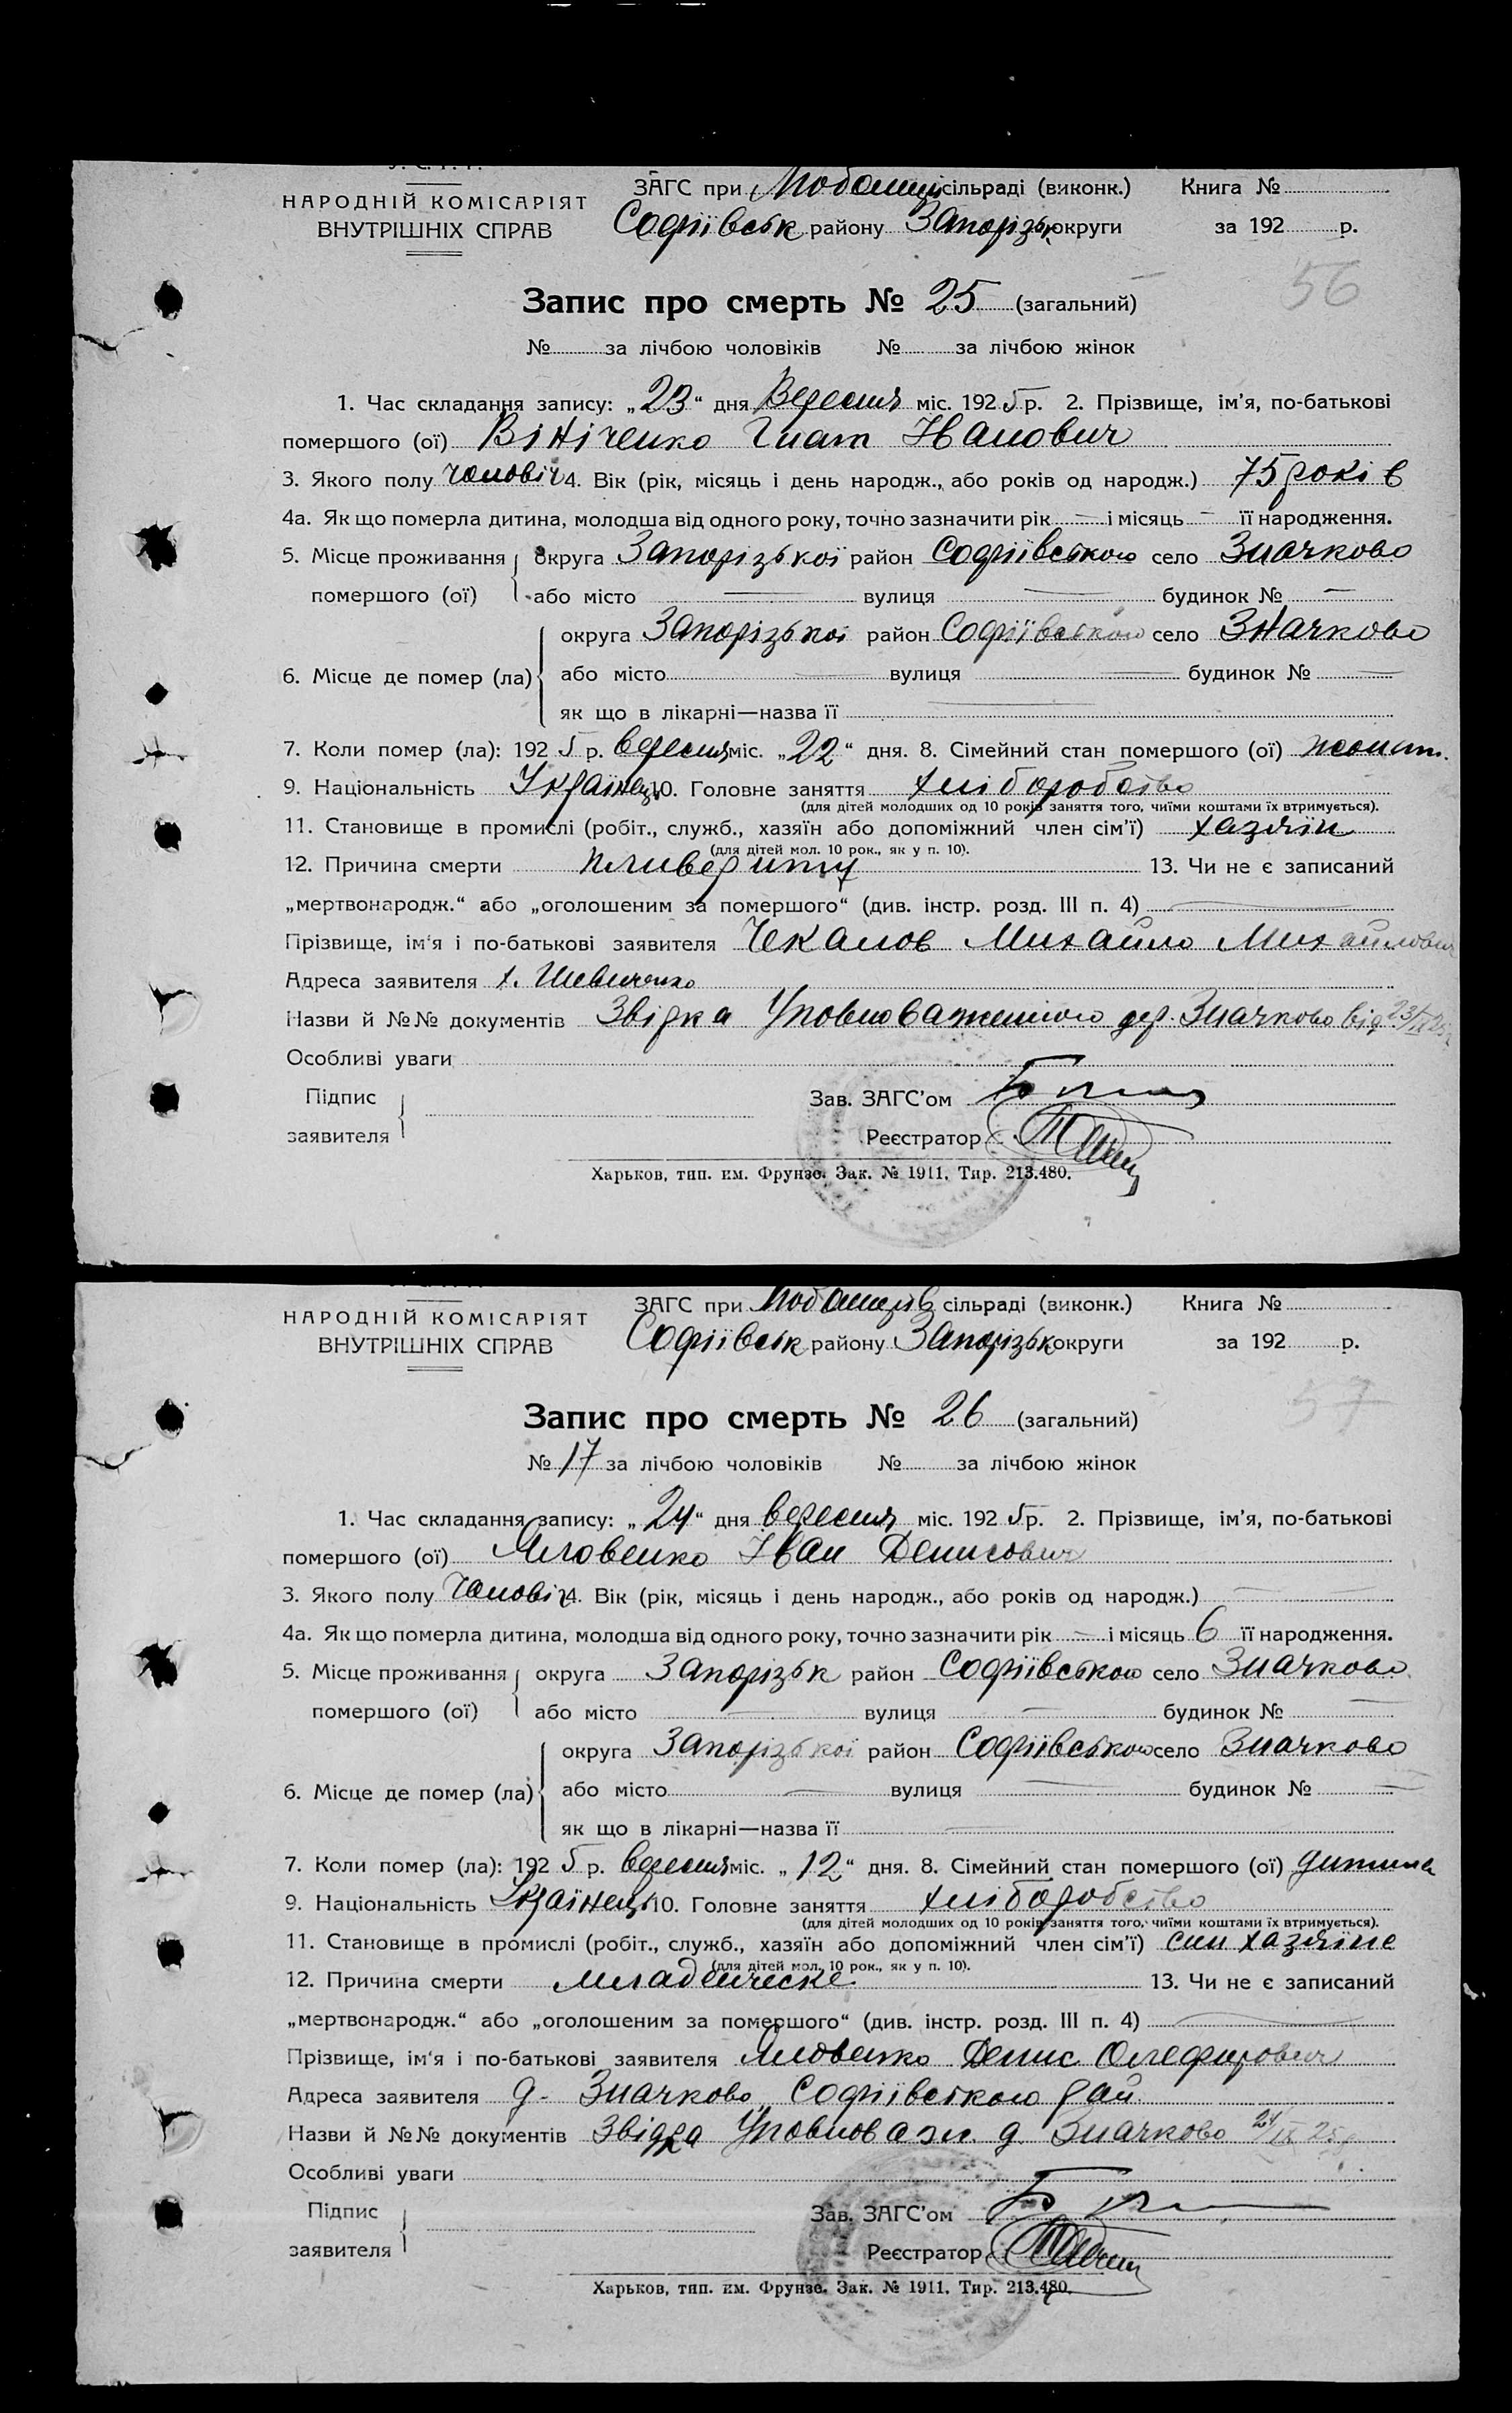 НАРОДНІЙ КОМІСАРІЯТ
ВНУТРІШНІХ СПРАВ
ЗАГС при сільраді (виконк.) Книга №
Софіївськ району Запорізьк округи за 192 р.
56
Запис про смерть № 25 (загальний)
№ за лічбою чоловіків № за лічбою жінок
1. Час складання запису: „23“ дня Вересня міс. 1925 р. 2. Прізвище, ім’я, по-батькові
помершого (ої) Вініченко Гнат Іванович
3. Якого полу чоловіч 4. Вік (рік, місяць і день народж., або років од народж.) 75 років
4а. Як що померла дитина, молодша від одного року, точно зазначити рік — і місяць — її народження.
5. Місце проживання округа Запорізької район Софіївського село Значково
помершого (ої) або місто — вулиця — будинок № —
округа Запорізької район Софіївського село Значково
6. Місце де помер (ла) або місто — вулиця — будинок № —
як що в лікарні—назва її —
7. Коли помер (ла): 1925 р. вересня міс. „22“ дня. 8. Сімейний стан помершого (ої) жонат.
9. Національність Українець 10. Головне заняття хліборобство
(для дітей молодших од 10 років заняття того, чиїми коштами їх втримується).
11. Становище в промислі (робіт., служб., хазяїн або допоміжний член сім’ї) хазяїн
(для дітей мол. 10 рок., як у п. 10).
12. Причина смерти 13. Чи не є записаний
„мертвонародж.“ або „оголошеним за помершого“ (див. інстр. розд. III п. 4) —
Прізвище, ім‘я і по-батькові заявителя Чекалов Михайло Михайлович
Адреса заявителя х. Шевченко
Назви й №№ документів Звідка Уповноваженного дер. Значково від 23/IX 25
Особливі уваги
Підпис Зав. ЗАГС’ом
заявителя Реєстратор
Харьков, тип. им. Фрунзе. Зак. № 1911. Тир. 213.480.
НАРОДНІЙ КОМІСАРІЯТ
ВНУТРІШНІХ СПРАВ
ЗАГС при сільраді (виконк.) Книга №
Софіївськ району Запорізьк округи за 192 р.
57
Запис про смерть № 26 (загальний)
№ 17 за лічбою чоловіків № за лічбою жінок
1. Час складання запису: „24“ дня вересня міс. 1925 р. 2. Прізвище, ім’я, по-батькові
помершого (ої) Яловенко Іван Денисович
3. Якого полу чоловіч 4. Вік (рік, місяць і день народж., або років од народж.) —
4а. Як що померла дитина, молодша від одного року, точно зазначити рік — і місяць 6 її народження.
5. Місце проживання округа Запорізьк район Софіївського село Значково
помершого (ої) або місто — вулиця — будинок № —
округа Запорізької район Софіївського село Значково
6. Місце де помер (ла) або місто — вулиця — будинок № —
як що в лікарні—назва її —
7. Коли помер (ла): 1925 р. вересня міс. „12“ дня. 8. Сімейний стан помершого (ої) дитина
9. Національність Українець 10. Головне заняття хліборобство
(для дітей молодших од 10 років заняття того, чиїми коштами їх втримується).
11. Становище в промислі (робіт., служб., хазяїн або допоміжний член сім’ї) син хазяїне
(для дітей мол. 10 рок., як у п. 10).
12. Причина смерти младенческе 13. Чи не є записаний
„мертвонародж.“ або „оголошеним за помершого“ (див. інстр. розд. III п. 4) —
Прізвище, ім‘я і по-батькові заявителя Яловенко Денис Олефирович
Адреса заявителя д. Значково Софіївського рай.
Назви й №№ документів Звідка Уповноваж. д. Значково 24/IX 25 р
Особливі уваги
Підпис Зав. ЗАГС’ом
заявителя Реєстратор
Харьков, тип. им. Фрунзе. Зак. № 1911. Тир. 213.480.